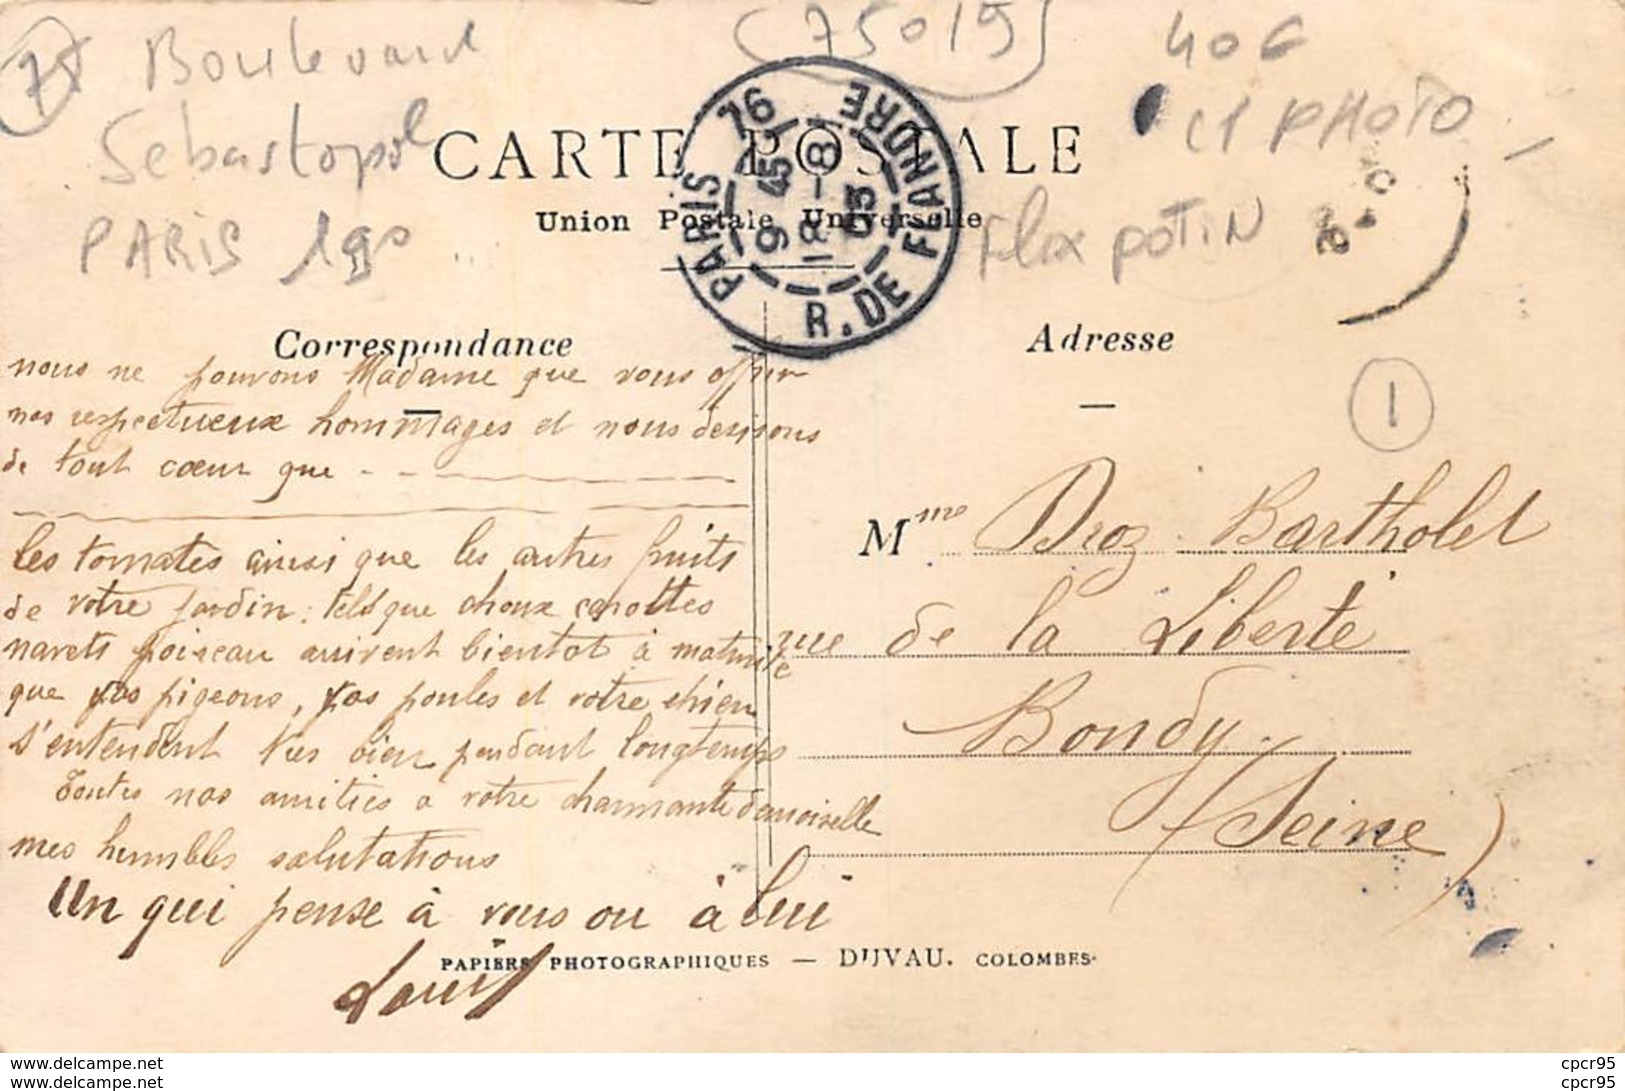 75
Boulevard
Sebastopol
PARIS 190 ..
(75019)
40€
C1 PHOTO
Flex POTIN
CARTE POSTALE
Union Postale Universelle
PARIS 76
R. DE FLANDRE
9 45
18 - 8
03
Correspondance
nous ne pouvons Madame que vous offrir
nos respectueux hommages et nous desirons
de tout cœur que
les tomates ainsi que les autres fruits
de votre jardin: tels que choux carottes
navets poireau arrivent bientot à maturité
que vos pigeons, vos poules et votre chien
s'entendent tres bien pendant longtemps
Toutes nos amitiés a votre charmante demoiselle
mes humbles salutations
Un qui pense à vous ou à lui
Louis
Adresse
1
Mme Droz. Barthelet
rue de la Liberté
Bondy.
(Seine)
PAPIERS PHOTOGRAPHIQUES — DUVAU. COLOMBES.
https://www.delcampe.net cpcr95
https://www.delcampe.net cpcr95